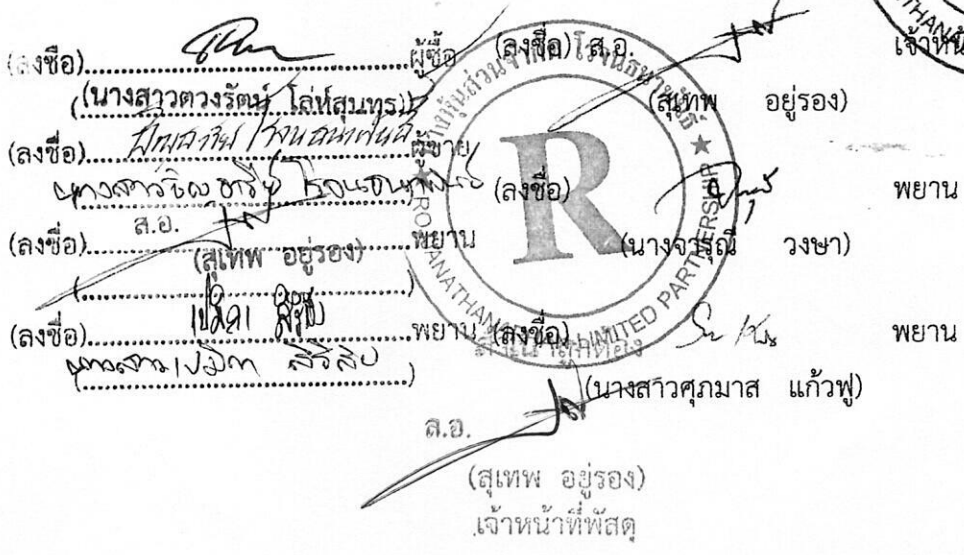 (ลงชื่อ)..............................ผู้ซื้อ
(นางสาวตวงรัตน์ โล่ห์สุนทร)
(ลงชื่อ)..............................ผู้ขาย
นางสาว
(ลงชื่อ)..............................พยาน
ส.อ.
(สุเทพ อยู่รอง)
(ลงชื่อ)..............................พยาน
นางสาวเปมิกา สิริสิบ
(ลงชื่อ) ส.อ.
เจ้าหน้
(สุเทพ อยู่รอง)
(ลงชื่อ) พยาน
(นางจารุณี วงษา)
(ลงชื่อ) พยาน
(นางสาวศุภมาส แก้วฟู)
ห้างหุ้นส่วนจำกัด โรจนธนาพันธ์
R
LIMITED PARTNERSHIP
สำเนาถูกต้อง
ส.อ.
(สุเทพ อยู่รอง)
เจ้าหน้าที่พัสดุ